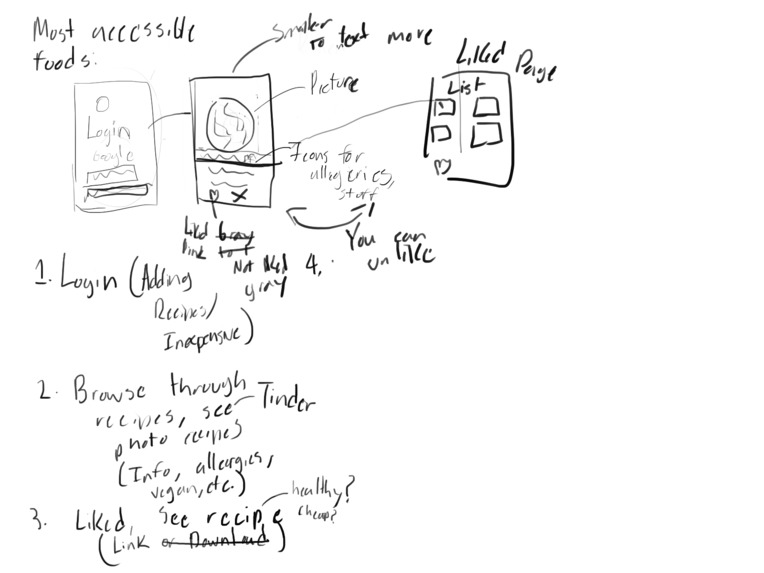 Most accessible
foods:
Smaller
to text more
Liked Page
List
Picture
Login
Google
Icons for
allergeries,
stuff
You can
unlike
Liked
Pink
Not liked
gray
4.
1. Login (Adding
Recipes/
Inexpensive)
2. Browse through
recipes, see
Tinder
photo recipes
(Info, allergies,
vegan, etc.)
3. Liked, see recipe
healthy?
cheap?
(Link or Download)